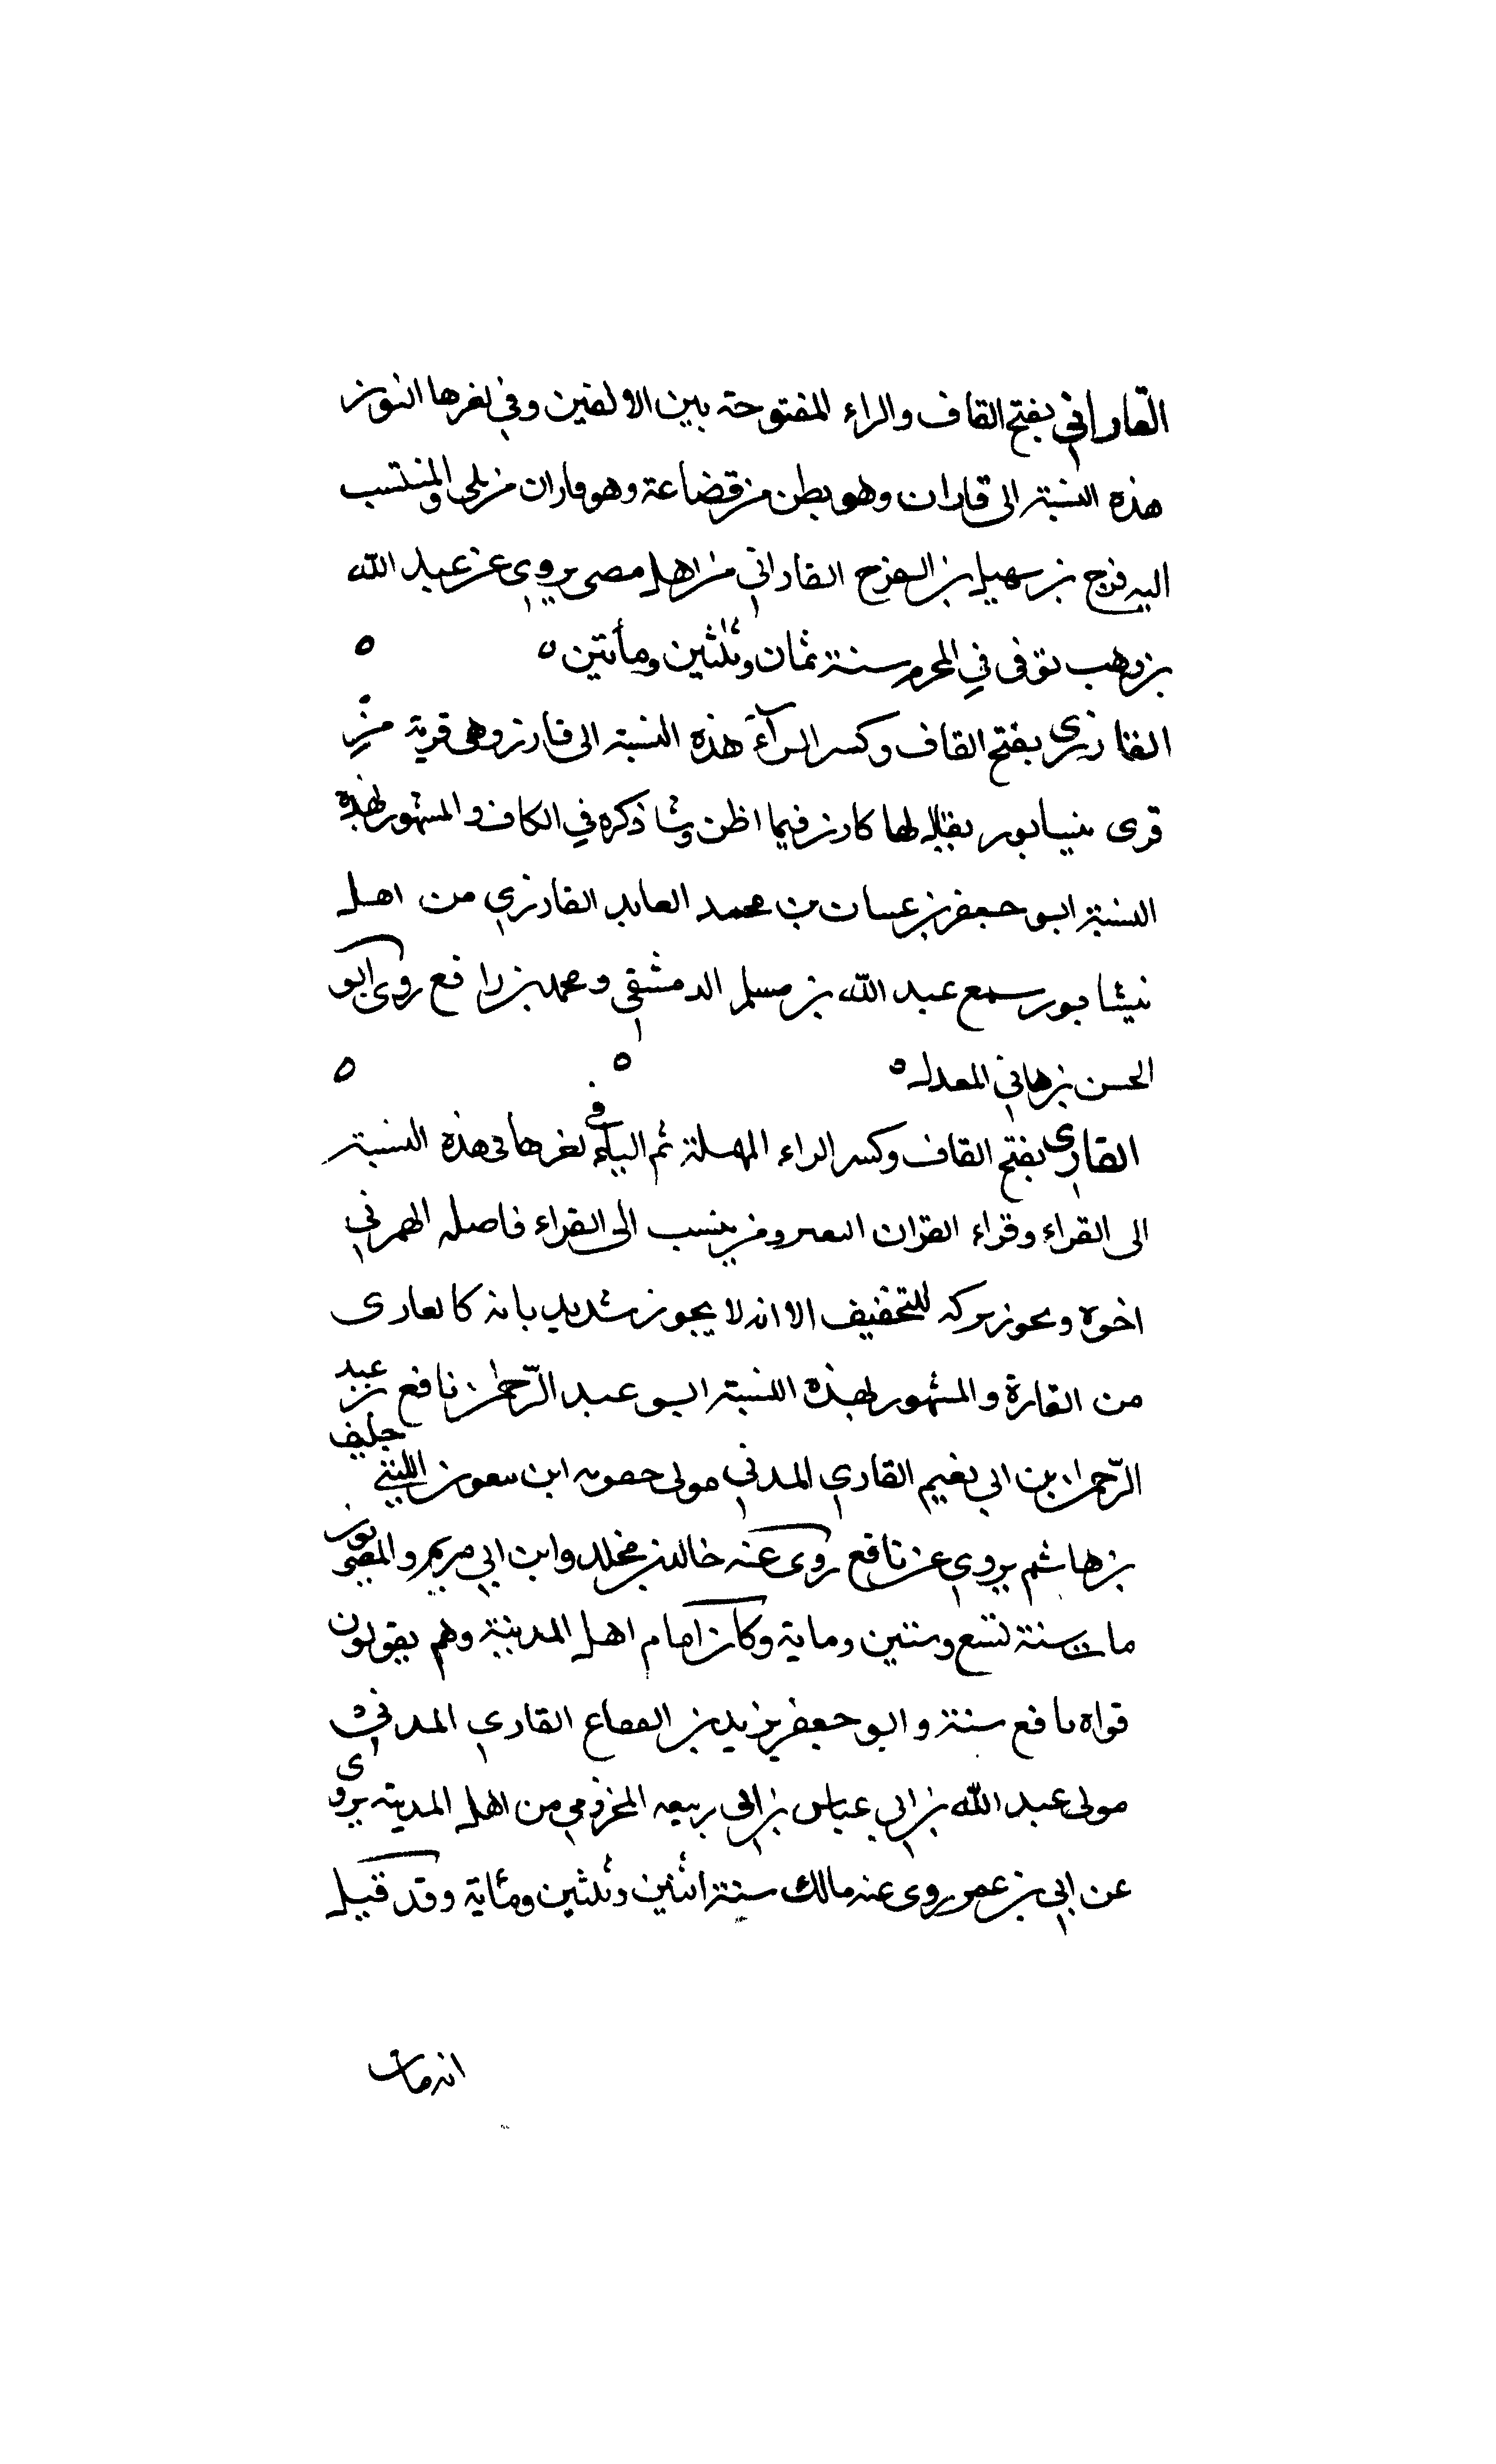 القاراني بفتح القاف والراء المفتوحة بين الالفين وفي اخرها النون
هذه النسبة الى قاران وهو بطن من قضاعة وهو قاران من بلى والمنتسب
اليه فرج بن سهيل بن الفرج القاراني من اهل مصر يروي عن عبد الله
بن وهب توفى في المحرم سنة ثمان وثلثين ومأتين ه ه
القارزي بفتح القاف وكسر الرآء هذه النسبة الى قارز وهى قرية من
قرى نيسابور يقال لها كارز فيما اظن وشا ذكره في الكاف والمشهور بهذه
النسبة ابو جعفر بن غسان بن محمد العابد القارزي من اهل
نيشابور سمع عبد الله بن مسلم الدمشقي ومحمد بن رافع روى ابو
الحسن بن هاني المعدل ه ه ه
القاري بفتح القاف وكسر الراء المهملة ثم الياء في اخرها في هذه النسبة
الى القراء وقراء القران ومن ينسب الى القراء فاصله الهمز في
اخره ويجوز تركه للتخفيف الا انه لا يجوز شديد يانه كالقارى
من القارة والمشهور بهذه النسبة ابو عبد الرحمن نافع بن عبد
الرحمن بن ابي نعيم القاري المدني مولى جعونه ابن شعوب الليثي حليف
بن هاشم يروي عن نافع روى عنه خالد بن مخلد وابن ابي مريم والمصريون
مات سنة تسع وستين وماية وكان امام اهل المدينة وهم يقولون
قراة نافع سنة وابو جعفر يزيد بن القعقاع القاري المدني
مولى عبد الله بن ابي عباس بن ابي ربيعه المخزومي من اهل المدينة يروى
عن ابي بن عمر روى عنه مالك سنة اثنين وثلثين ومئاية وقد قيل
انه مات